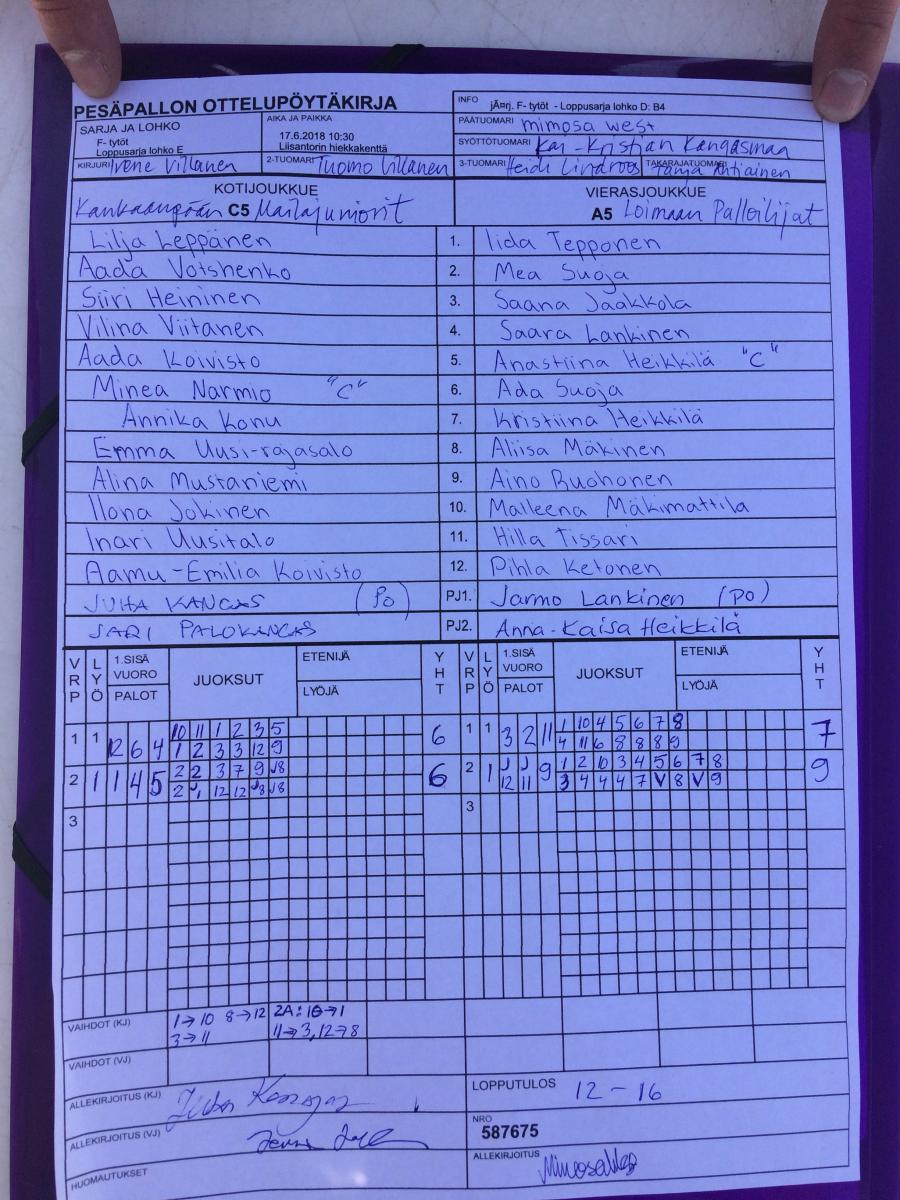 PESÄPALLON OTTELUPÖYTÄKIRJA
INFO jÃ¤rj. F- tytöt - Loppusarja lohko D: B4
SARJA JA LOHKO
F- tytöt
Loppusarja lohko E
AIKA JA PAIKKA
17.6.2018 10:30
Liisantorin hiekkakenttä
PÄÄTUOMARI mimosa west
SYÖTTÖTUOMARI Kai-Kristian Kangasmaa
KIRJURI Irene Villanen 2-TUOMARI Tuomo Villanen 3-TUOMARI Heidi Lindroos TAKARAJATUOMARI Tanja Ahtiainen
KOTIJOUKKUE VIERASJOUKKUE
Kankaanpään C5 Mailajuniorit A5 Loimaan Palloilijat
Lilja Leppänen 1. Iida Tepponen
Aada Votshenko 2. Mea Suoja
Siiri Heininen 3. Saana Jaakkola
Vilina Viitanen 4. Saara Lankinen
Aada Koivisto 5. Anastiina Heikkilä "C"
Minea Narmio "C" 6. Ada Suoja
Annika Konu 7. Kristiina Heikkilä
Emma Uusi-rajasalo 8. Aliisa Mäkinen
Alina Mustaniemi 9. Aino Ruohonen
Ilona Jokinen 10. Malleena Mäkimattila
Inari Uusitalo 11. Hilla Tissari
Aamu-Emilia Koivisto 12. Pihla Ketonen
JUHA KANGAS (PO) PJ1. Jarmo Lankinen (PO)
JARI PALOKANGAS PJ2. Anna-Kaisa Heikkilä
VRP LYÖ 1.SISÄ VUORO PALOT JUOKSUT ETENIJÄ LYÖJÄ YHT VRP LYÖ 1.SISÄ VUORO PALOT JUOKSUT ETENIJÄ LYÖJÄ YHT
10 11 1 2 3 5 1 10 4 5 6 7 8
1 1 12 6 4 6 1 1 3 2 11 7
1 2 3 3 12 9 4 11 6 8 8 8 9
2 2 3 7 9 J8 1 2 10 3 4 5 6 7 8
2 1 1 4 5 6 2 1 J12 J11 9 9
2 J1 12 12 J8 J8 3 4 4 4 7 V 8 V 9
3 3
VAIHDOT (KJ) 1→10 8→12 2A: 10→1
3→11 11→3, 12→8
VAIHDOT (VJ)
ALLEKIRJOITUS (KJ)
LOPPUTULOS 12-16
ALLEKIRJOITUS (VJ)
NRO
587675
HUOMAUTUKSET
ALLEKIRJOITUS